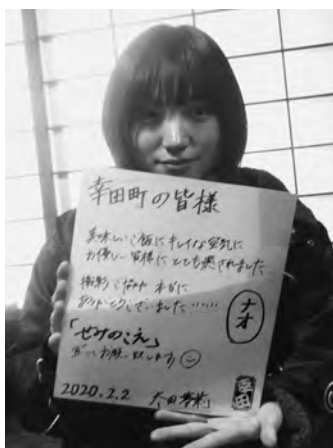 幸田町の皆様
美味しいご飯にキレイな空気に
お優しい皆様にとても癒されました
撮影 本当に
ありがとうございました……
ナオ
「せみのこえ」
お願い致します
2020.2.2
幸田